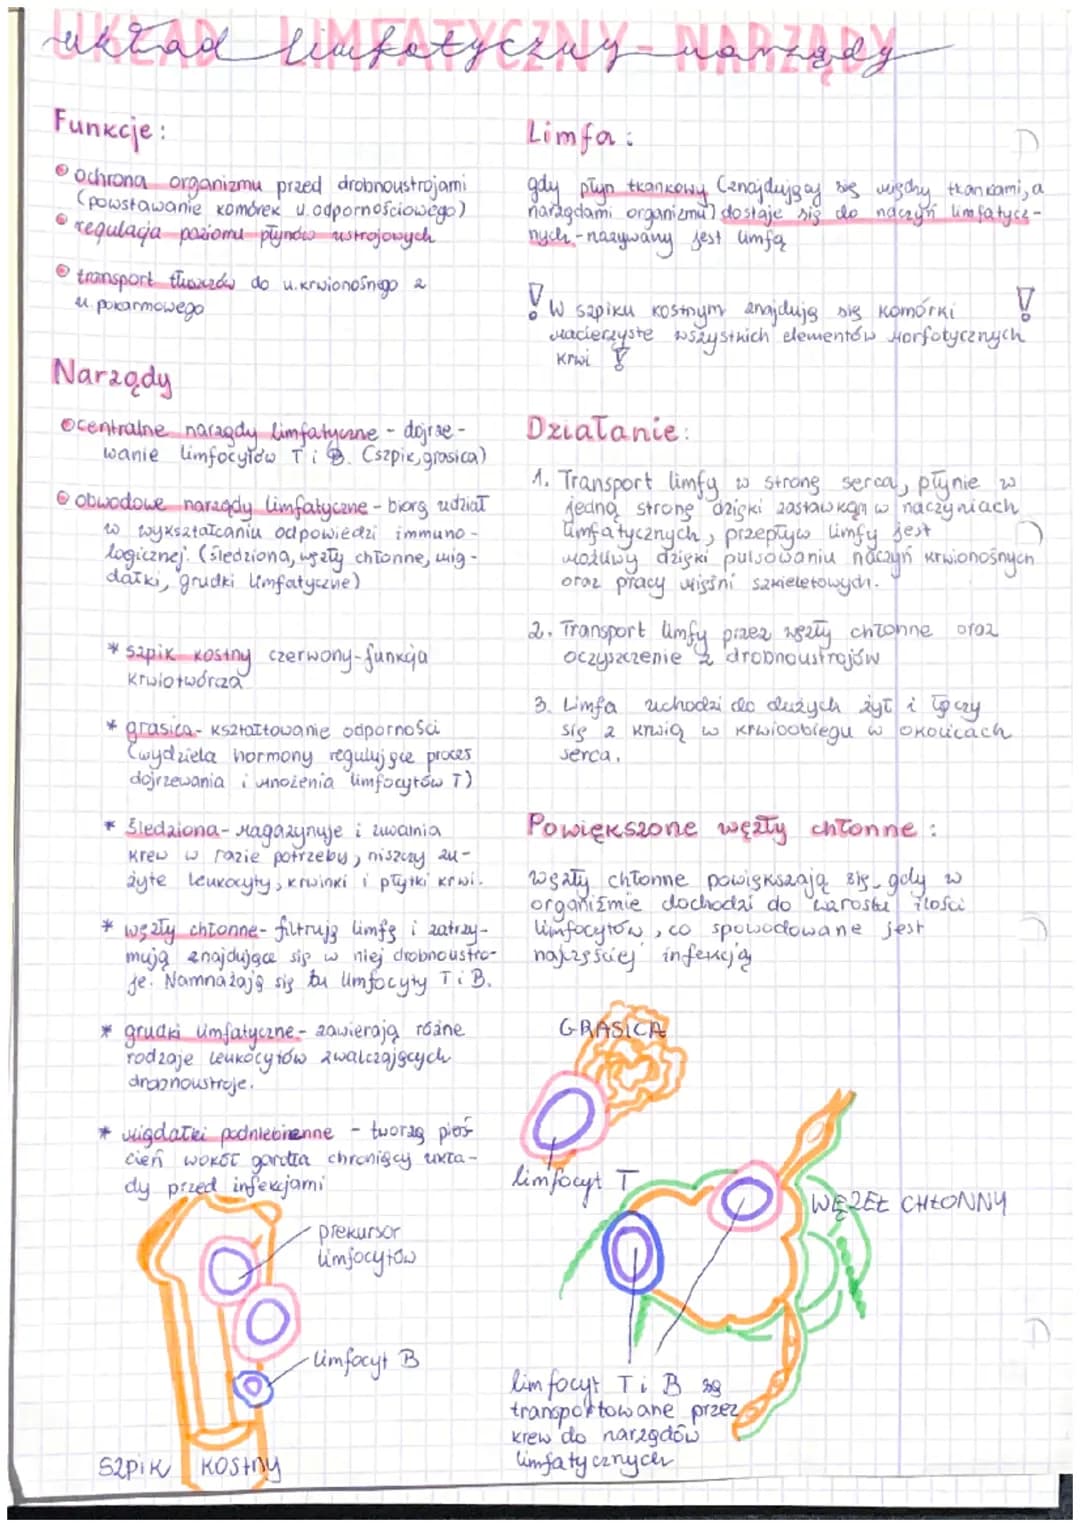 układ limfatyczny - narządy
UKŁAD LIMFATYCZNY - NARZĄDY
Funkcje:
ochrona organizmu przed drobnoustrojami
(powstawanie komórek u. odpornościowego)
regulacja poziomu płynów ustrojowych
transport tłuszczów do u. krwionośnego z
u. pokarmowego
Narządy
centralne narządy limfatyczne - dojrze-
wanie limfocytów T i B. (szpik, grasica)
obwodowe narządy limfatyczne - biorą udział
w wykształcaniu odpowiedzi immuno-
logicznej. (śledziona, węzły chłonne, mig-
dałki, grudki limfatyczne)
* szpik kostny czerwony - funkcja
krwiotwórcza
* grasica - kształtowanie odporności
(wydziela hormony regulujące proces
dojrzewania i mnożenia limfocytów T)
* śledziona - magazynuje i uwalnia
krew w razie potrzeby, niszczy zu-
żyte leukocyty, krwinki i płytki krwi.
* węzły chłonne - filtrują limfę i zatrzy-
mują znajdujące się w niej drobnoustro-
je. Namnażają się tu limfocyty T i B.
* grudki limfatyczne - zawierają różne
rodzaje leukocytów zwalczających
drobnoustroje.
* migdałki podniebienne - tworzą pierś-
cień wokół gardła chroniący ukła-
dy przed infekcjami
prekursor
limfocytów
limfocyt B
SZPIK KOSTNY
Limfa:
gdy płyn tkankowy (znajdujący się między tkankami, a
narządami organizmu) dostaje się do naczyń limfatycz-
nych - nazywany jest limfą
! W szpiku kostnym znajdują się komórki !
macierzyste wszystkich elementów morfotycznych
krwi !
Działanie:
1. Transport limfy w stronę serca, płynie w
jedną stronę dzięki zastawkom w naczyniach
limfatycznych, przepływ limfy jest
możliwy dzięki pulsowaniu naczyń krwionośnych
oraz pracy mięśni szkieletowych.
2. Transport limfy przez węzły chłonne oraz
oczyszczenie z drobnoustrojów
3. Limfa uchodzi do dużych żył i łączy
się z krwią w krwioobiegu w okolicach
serca.
Powiększone węzły chłonne:
węzły chłonne powiększają się, gdy w
organiźmie dochodzi do wzrostu ilości
limfocytów, co spowodowane jest
najczęściej infekcją
GRASICA
limfocyt T
WĘZEŁ CHŁONNY
limfocyt T i B są
transportowane przez
krew do narządów
limfatycznych